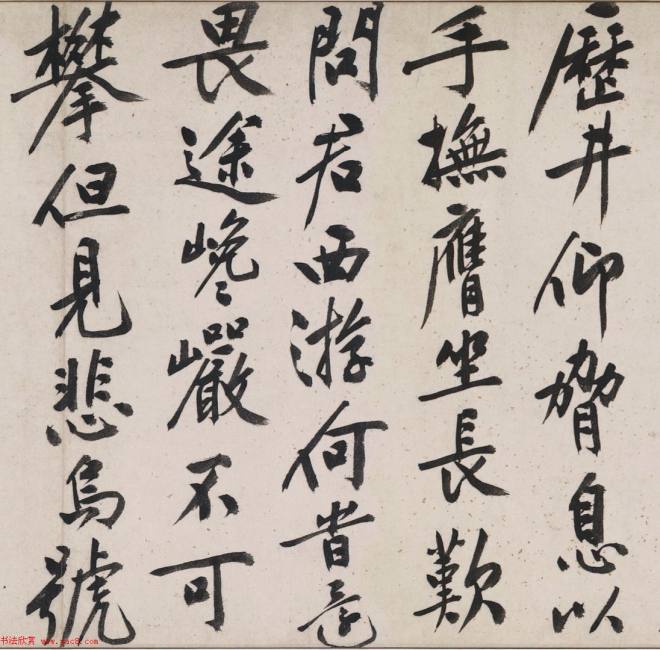 歷井仰脅息以
手撫膺坐長歎
問君西游何當還
畏途巉巖不可
攀但見悲鳥號
书法欣赏 www.yac8.com